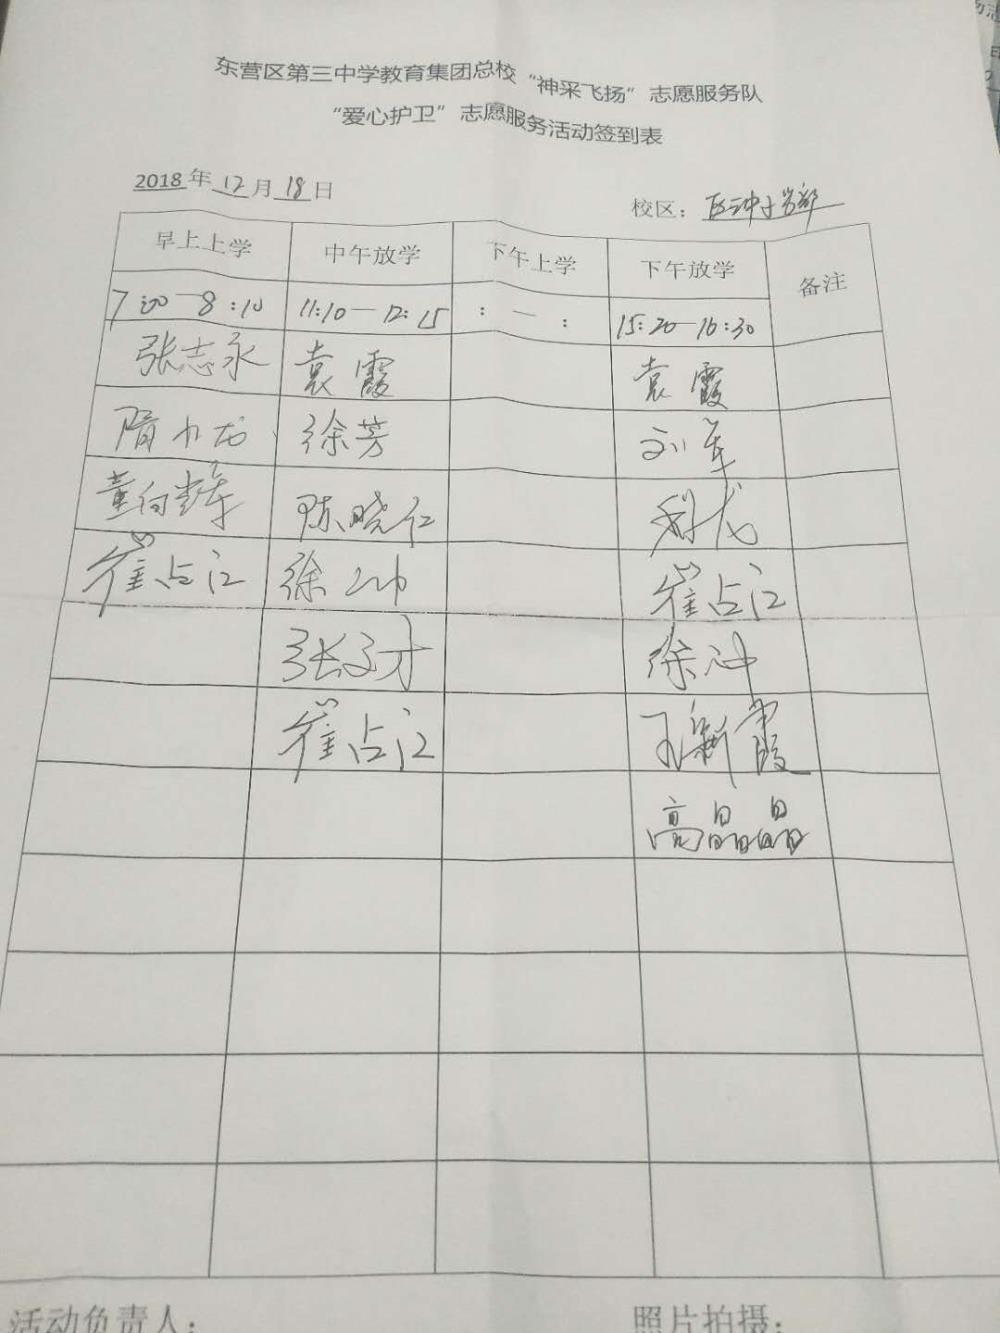 东营区第三中学教育集团总校“神采飞扬”志愿服务队
“爱心护卫”志愿服务活动签到表
2018年12月18日
校区：区三中小学部
早上上学 中午放学 下午上学 下午放学 备注
7:00—8:10 11:10—12:15 : — : 15:20—16:30
张志永 袁霞 袁霞
隋小龙 徐芳 刘军
董向辉 陈晓仁
崔占江 徐帅 崔占江
张文才 徐冲
崔占江 王新霞
高晶晶
活动负责人：
照片拍摄：